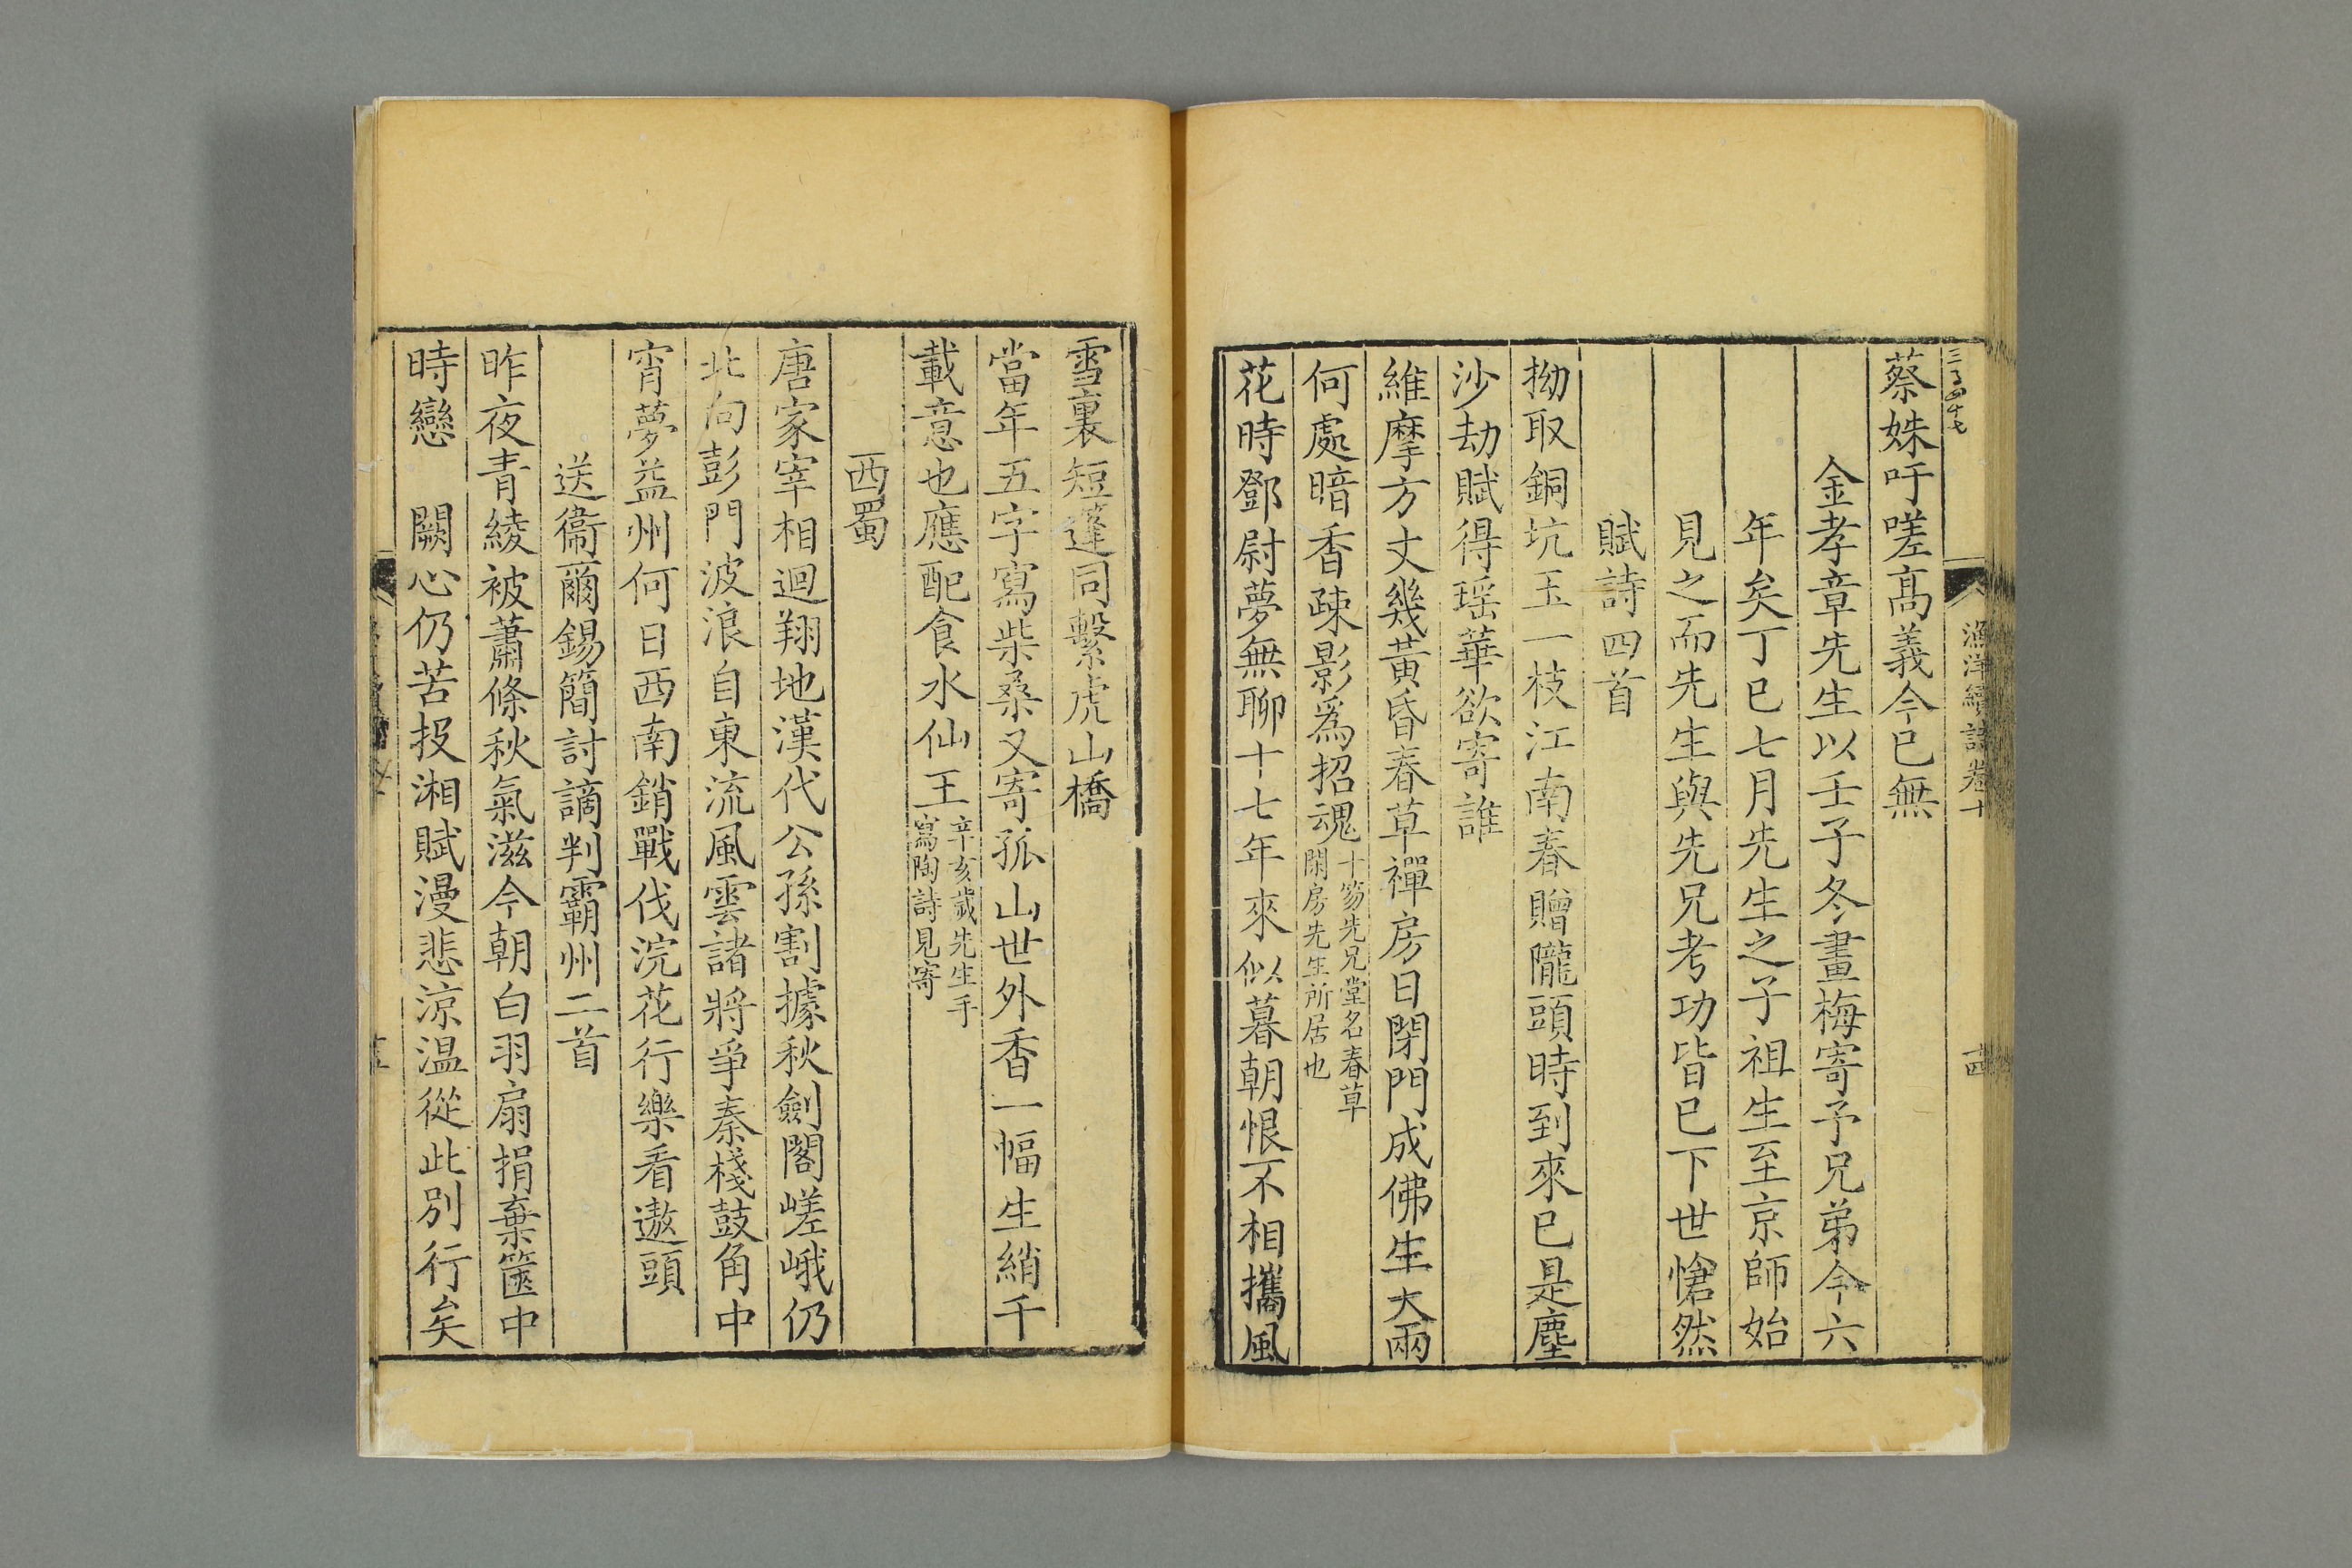 漁洋續詩卷十
蔡姝吁嗟高義今已無
金孝章先生以壬子冬畫梅寄予兄弟今六
年矣丁巳七月先生之子祖生至京師始
見之而先生與先兄考功皆已下世愴然
賦詩四首
拗取銅坑玉一枝江南春贈隴頭時到來已是塵
沙劫賦得瑶華欲寄誰
維摩方丈幾黃昏春草禪房日閉門成佛生天兩
何處暗香疎影爲招魂十笏先兄堂名春草
閑房先生所居也
花時鄧尉夢無聊十七年來似暮朝恨不相攜風
雪裏短蓬同繫虎山橋
當年五字寫柴桑又寄孤山世外香一幅生綃千
載意也應配食水仙王辛亥歲先生手
寫陶詩見寄
西蜀
唐家宰相迴翔地漢代公孫割據秋劍閣嵯峨仍
北向彭門波浪自東流風雲諸將爭秦棧鼓角中
宵夢益州何日西南銷戰伐浣花行樂看遨頭
送衞爾錫簡討謫判霸州二首
昨夜青綾被蕭條秋氣滋今朝白羽扇捐棄篋中
時戀 闕心仍苦投湘賦漫悲涼温從此別行矣